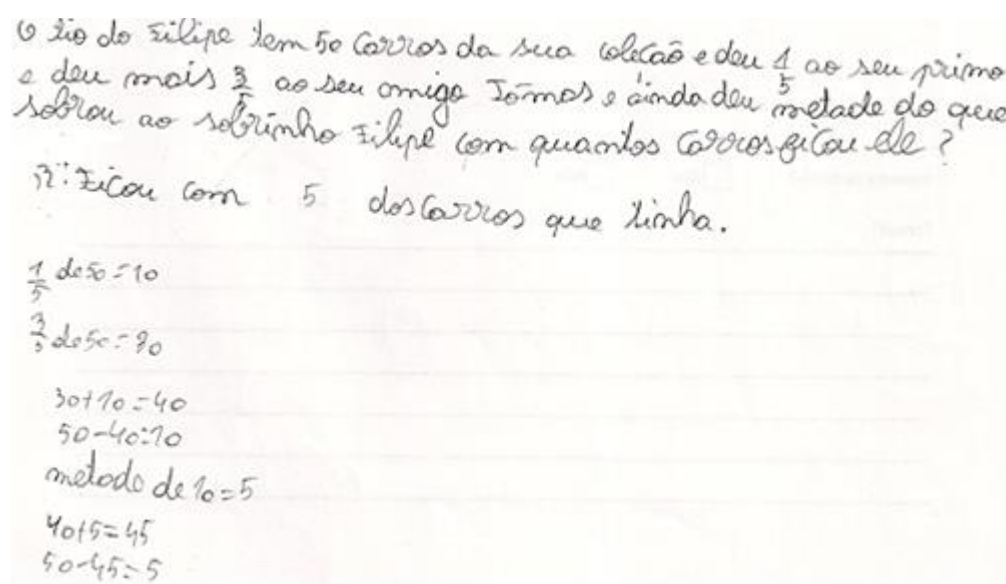 O tio do Filipe tem 50 carros da sua coleção e deu 1/5 ao seu primo
e deu mais 3/5 ao seu amigo Tomás e ainda deu metade do que
sobrou ao sobrinho Filipe com quantos carros ficou ele?
R: Ficou com 5 dos carros que tinha.
1/5 de 50 = 10
3/5 de 50 = 30
30+10=40
50-40=10
metade de 10=5
40+5=45
50-45=5